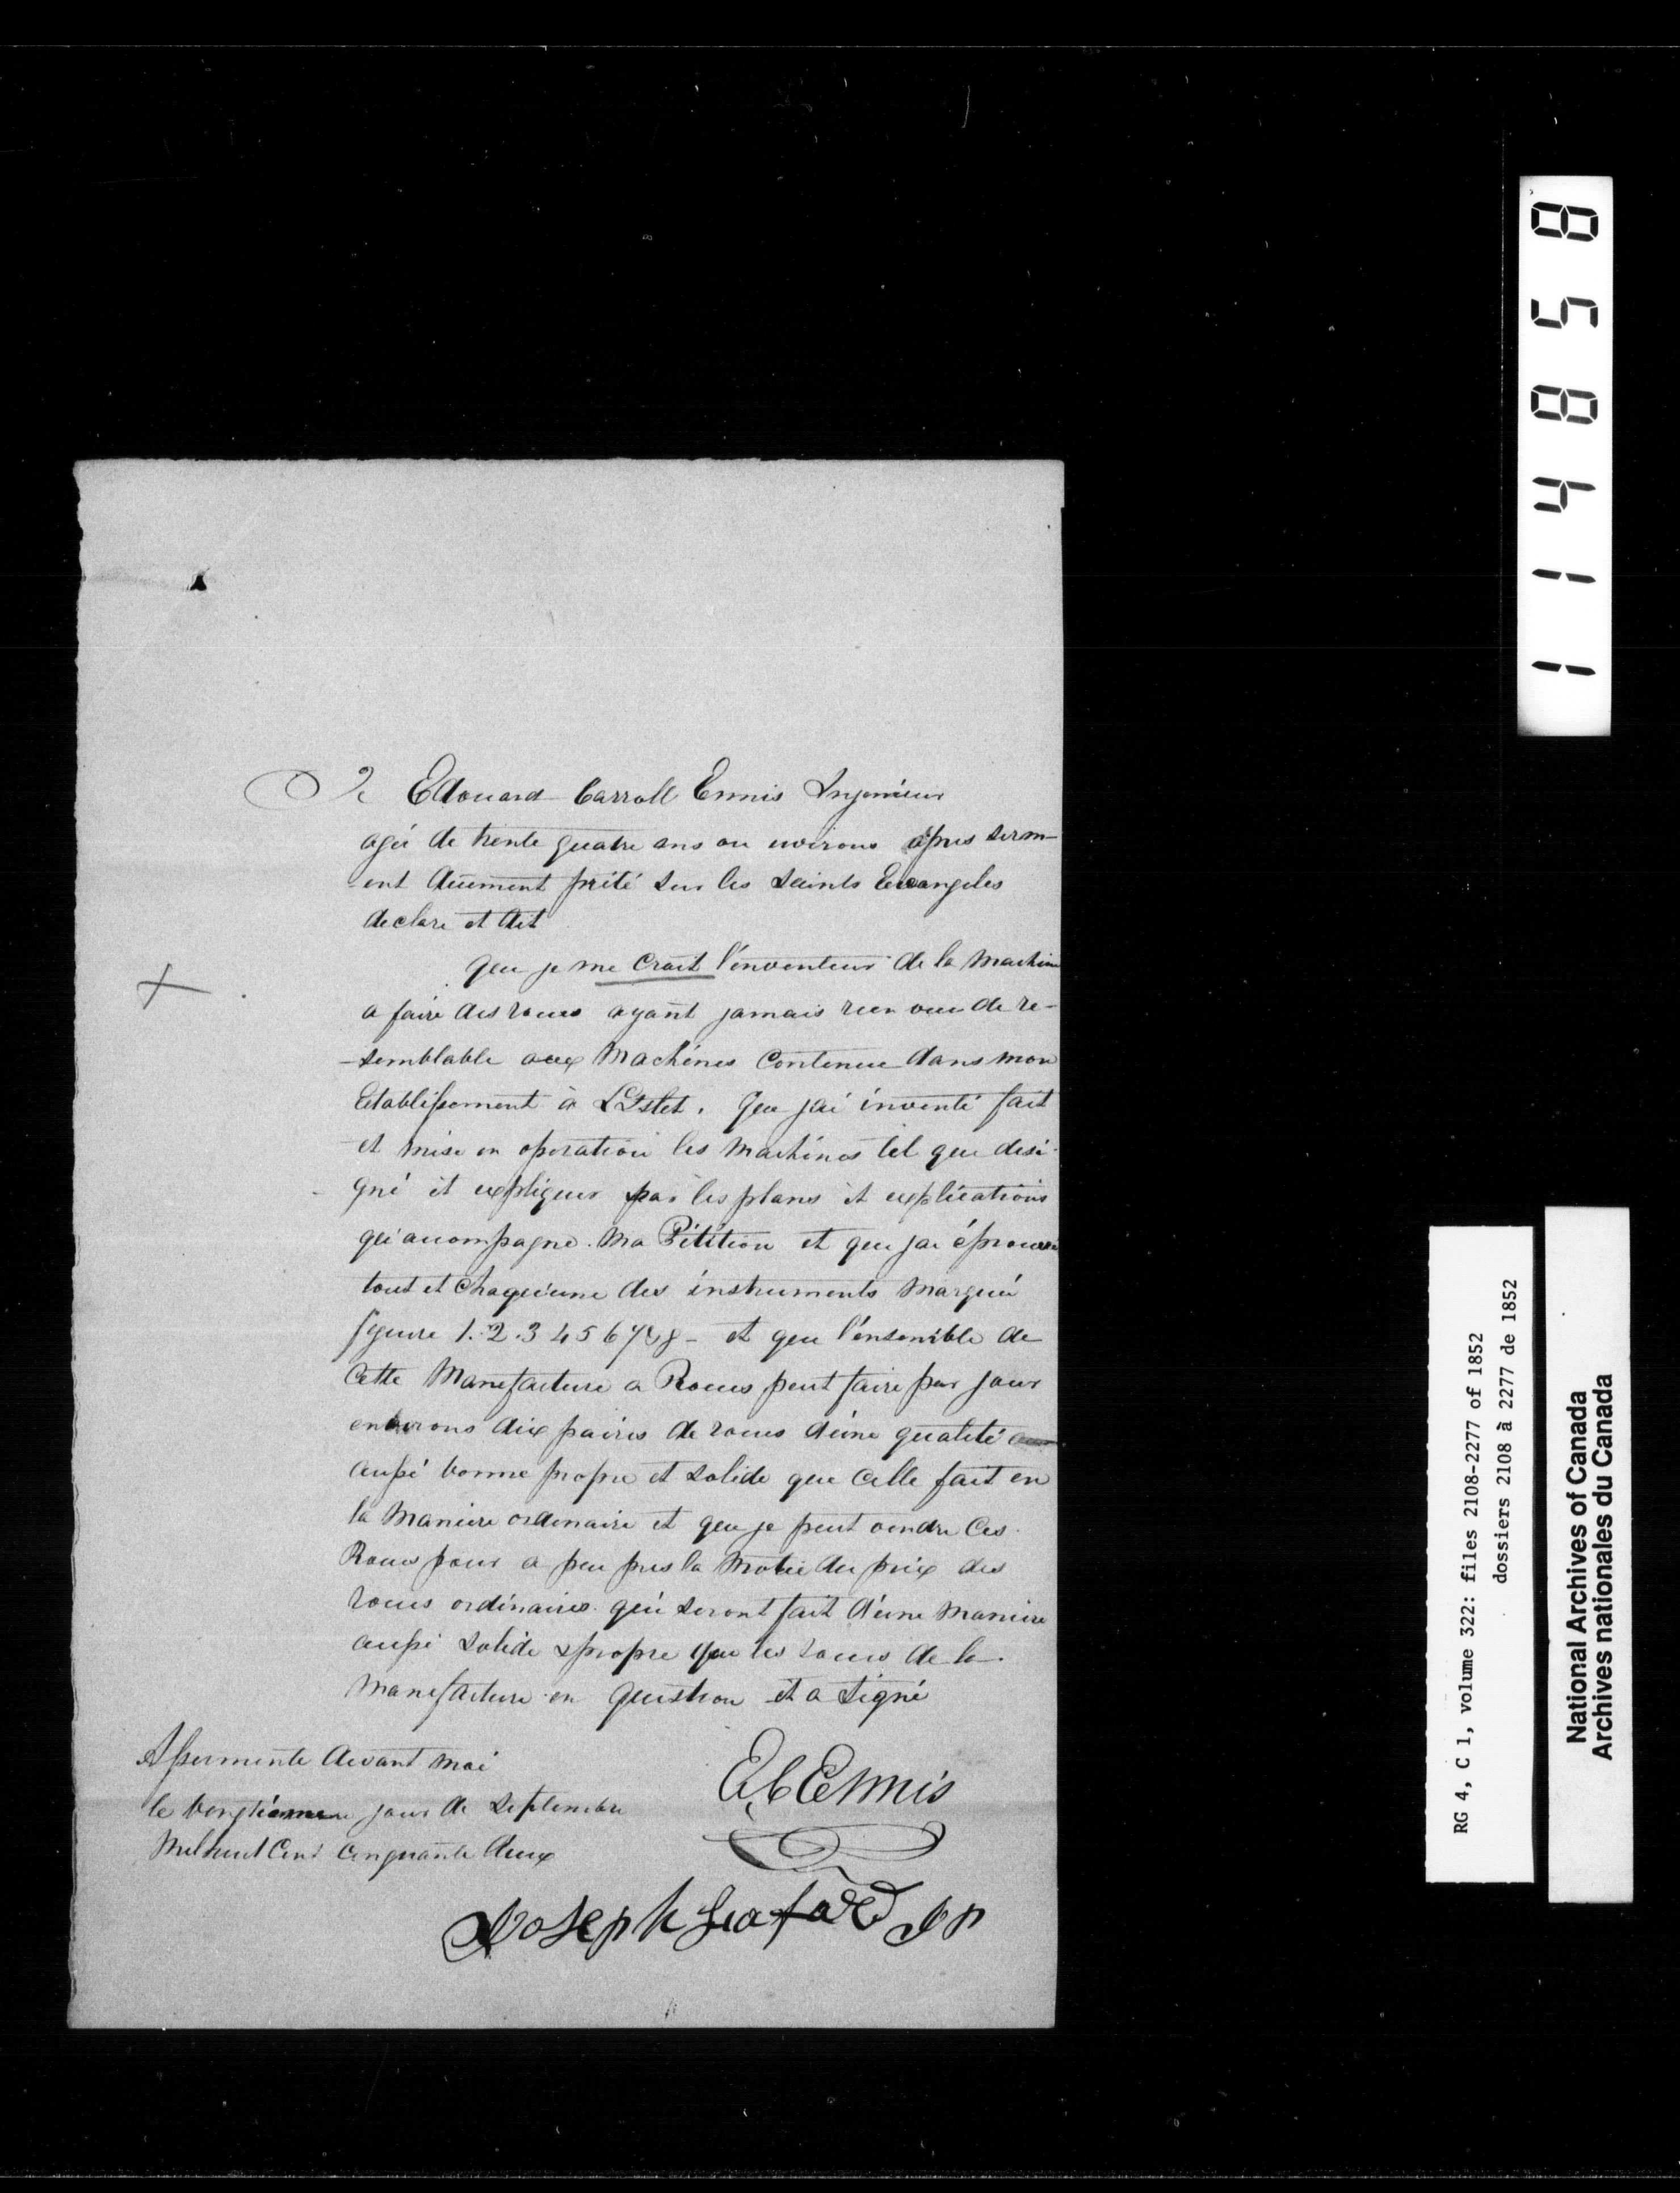 Je Edouard Carroll Ennis Ingenieur
agé de trente quatre ans ou environs apres serm-
ent duement prété sur les Saints Evangeles
declare et dit
Que je me Croit l'inventeur de la Machine
a faire des roues ayant jamais rien vue de re-
-semblable aux Machines Contenue dans mon
Etablissement à L'Islet. Que jai inventé fait
et mise en operation les Machines tel que desi-
gné et expliquer par les plans et explications
qui acompagne. Ma Pétition et que jai éprouvé
tout et Chaqu'une des instruments Marqué
figure 1. 2. 3 4 5 6 7 & 8 - et que l'ensemble de
Cette Manefacture a Roues peut faire par jour
environs dix paires de roues d'une qualité
aussi bonne propre et solide que Celle fait en
la Maniere ordenaire et que je peut vendre Ces
Roues pour a peu pres la Motié du prix des
roues ordinaires qui seront fait d'une Maniere
aussi Solide & propre que les roues de la
Manefacture en Question et a Signé
Assermente devant moi
le Vengtieme jour de Septembre
Mil huit Cent Cinquante deux
E.C Ennis
Joseph Giafard JP
1 1 4 8 5 8
RG 4, C 1, volume 322: files 2108-2277 of 1852
dossiers 2108 à 2277 de 1852
National Archives of Canada
Archives nationales du Canada